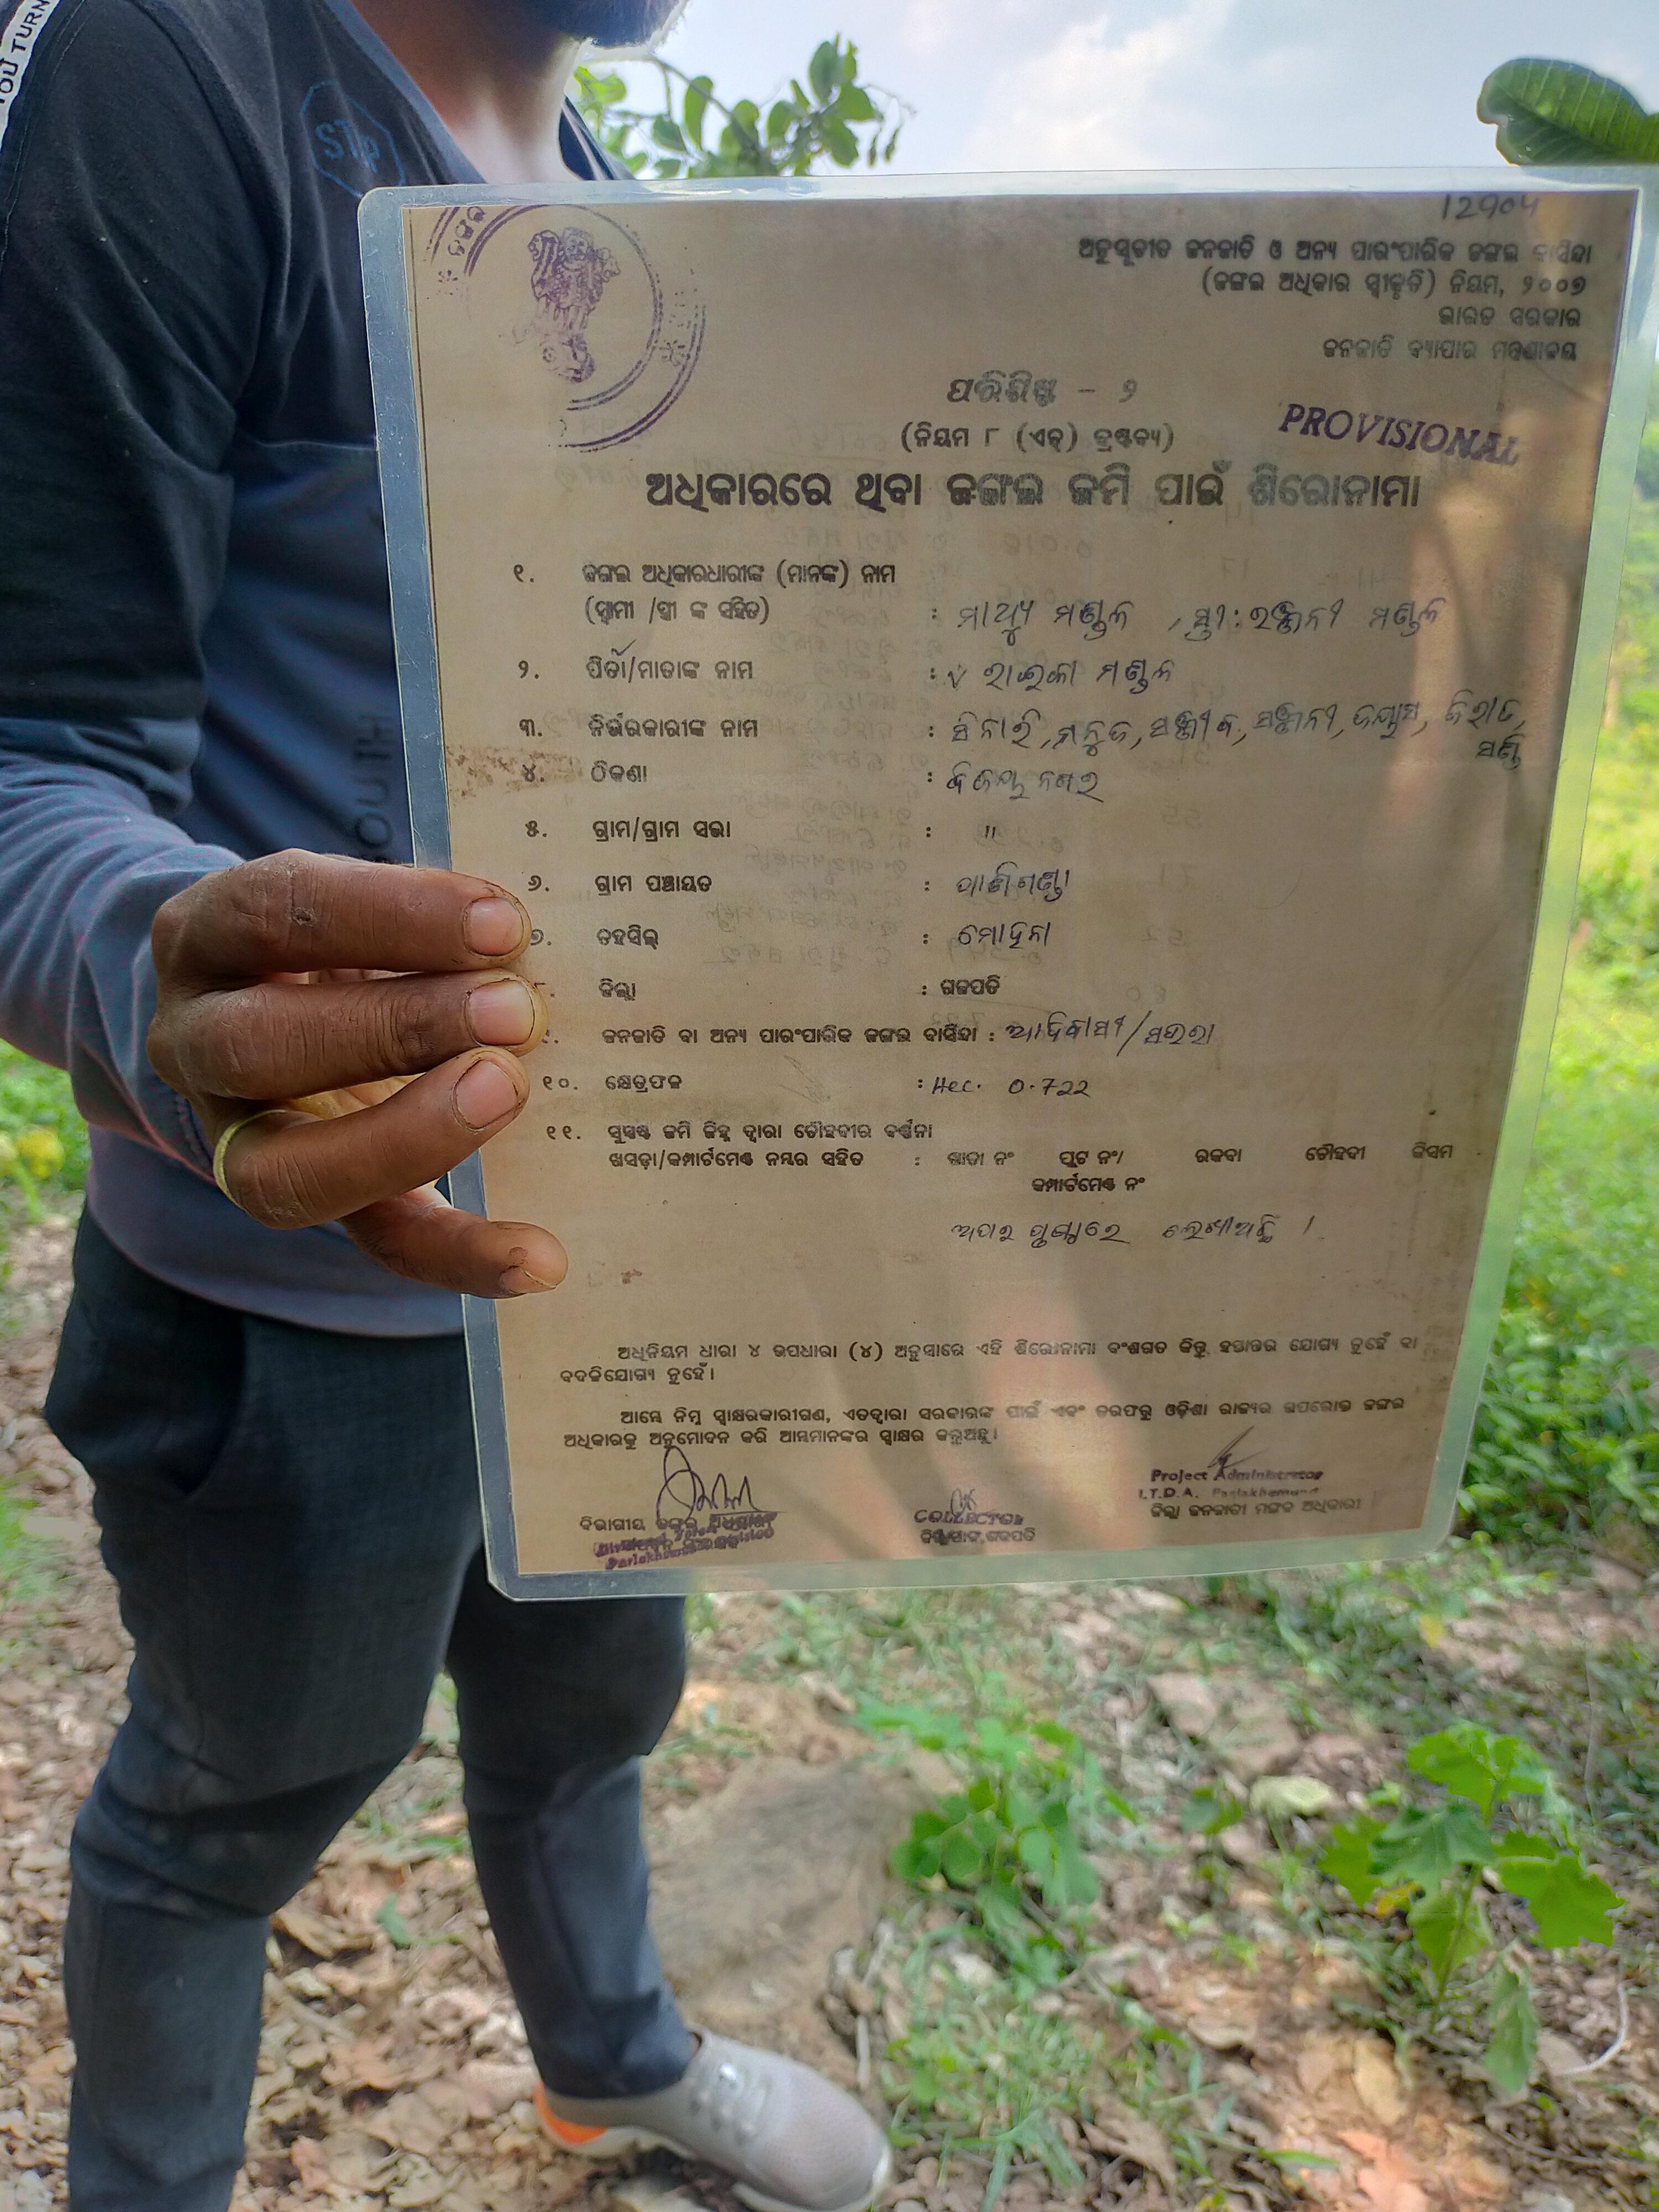 YOU TURN
STP
SOUTH
12904
ଅନୁସୂଚୀତ ଜନଜାତି ଓ ଅନ୍ୟ ପାରଂପାରିକ ଜଙ୍ଗଲ ବାସିନ୍ଦା
(ଜଙ୍ଗଲ ଅଧିକାର ସ୍ୱୀକୃତି) ନିୟମ, ୨୦୦୭
ଭାରତ ସରକାର
ଜନଜାତି ବ୍ୟାପାର ମନ୍ତ୍ରଣାଳୟ
ପରିଶିଷ୍ଟ - ୨
PROVISIONAL
(ନିୟମ ୮ (ଏଚ୍) ଦ୍ରଷ୍ଟବ୍ୟ)
ଅଧିକାରରେ ଥିବା ଜଙ୍ଗଲ ଜମି ପାଇଁ ଶିରୋନାମା
୧. ଜଙ୍ଗଲ ଅଧିକାରଧାରୀଙ୍କ (ମାନଙ୍କ) ନାମ
(ସ୍ୱାମୀ /ସ୍ତ୍ରୀ ଙ୍କ ସହିତ) : ମାଥ୍ୟୁ ମଣ୍ଡଳ , ସ୍ତ୍ରୀ: ରଞ୍ଜନୀ ମଣ୍ଡଳ
୨. ପିତା/ମାତାଙ୍କ ନାମ : ମଣ୍ଡଳ
୩. ନିର୍ଭରକାରୀଙ୍କ ନାମ : ମନୁଜ, ସଞ୍ଜୀବ, ସଞ୍ଜନୀ,
୪. ଠିକଣା : ବିଜୟ ନଗର
୫. ଗ୍ରାମ/ଗ୍ରାମ ସଭା : "
୬. ଗ୍ରାମ ପଞ୍ଚାୟତ : ପାଣିଗଣ୍ଡା
୭. ତହସିଲ୍ : ମୋହନା
୮. ଜିଲ୍ଲା : ଗଜପତି
୯. ଜନଜାତି ବା ଅନ୍ୟ ପାରଂପାରିକ ଜଙ୍ଗଲ ବାସିନ୍ଦା : ଆଦିବାସୀ/ସଉରା
୧୦. କ୍ଷେତ୍ରଫଳ : Hec. 0.722
୧୧. ସୁସ୍ପଷ୍ଟ ଜମି ଚିହ୍ନ ଦ୍ୱାରା ଚୌହଦୀର ବର୍ଣ୍ଣନା
ଖସଡ଼ା/କମ୍ପାର୍ଟମେଣ୍ଟ ନମ୍ବର ସହିତ : ଖାତା ନଂ ପ୍ଲଟ ନଂ/ ରକବା ଚୌହଦୀ କିସମ
କମ୍ପାର୍ଟମେଣ୍ଟ ନଂ
ଅପର ପୃଷ୍ଠାରେ ଲେଖାଅଛି ।
ଅଧିନିୟମ ଧାରା ୪ ଉପଧାରା (୪) ଅନୁସାରେ ଏହି ଶିରୋନାମା ବଂଶଗତ କିନ୍ତୁ ହସ୍ତାନ୍ତର ଯୋଗ୍ୟ ନୁହେଁ ବା
ବଦଳିଯୋଗ୍ୟ ନୁହେଁ।
ଆମ୍ଭେ ନିମ୍ନ ସ୍ୱାକ୍ଷରକାରୀଗଣ, ଏତଦ୍ୱାରା ସରକାରଙ୍କ ପାଇଁ ଏବଂ ତରଫରୁ ଓଡ଼ିଶା ରାଜ୍ୟର ଉପରୋକ୍ତ ଜଙ୍ଗଲ
ଅଧିକାରକୁ ଅନୁମୋଦନ କରି ଆମ୍ଭମାନଙ୍କର ସ୍ୱାକ୍ଷର କରୁଅଛୁ।
Project Administrator
I.T.D.A. Parlakhemundi
ଜିଲ୍ଲା ଜନଜାତୀ ମଙ୍ଗଳ ଅଧିକାରୀ
COLLECTOR
ବିଭାଗୀୟ ଜଙ୍ଗଲ ଅଧିକାରୀ
Parlakhemundi Division